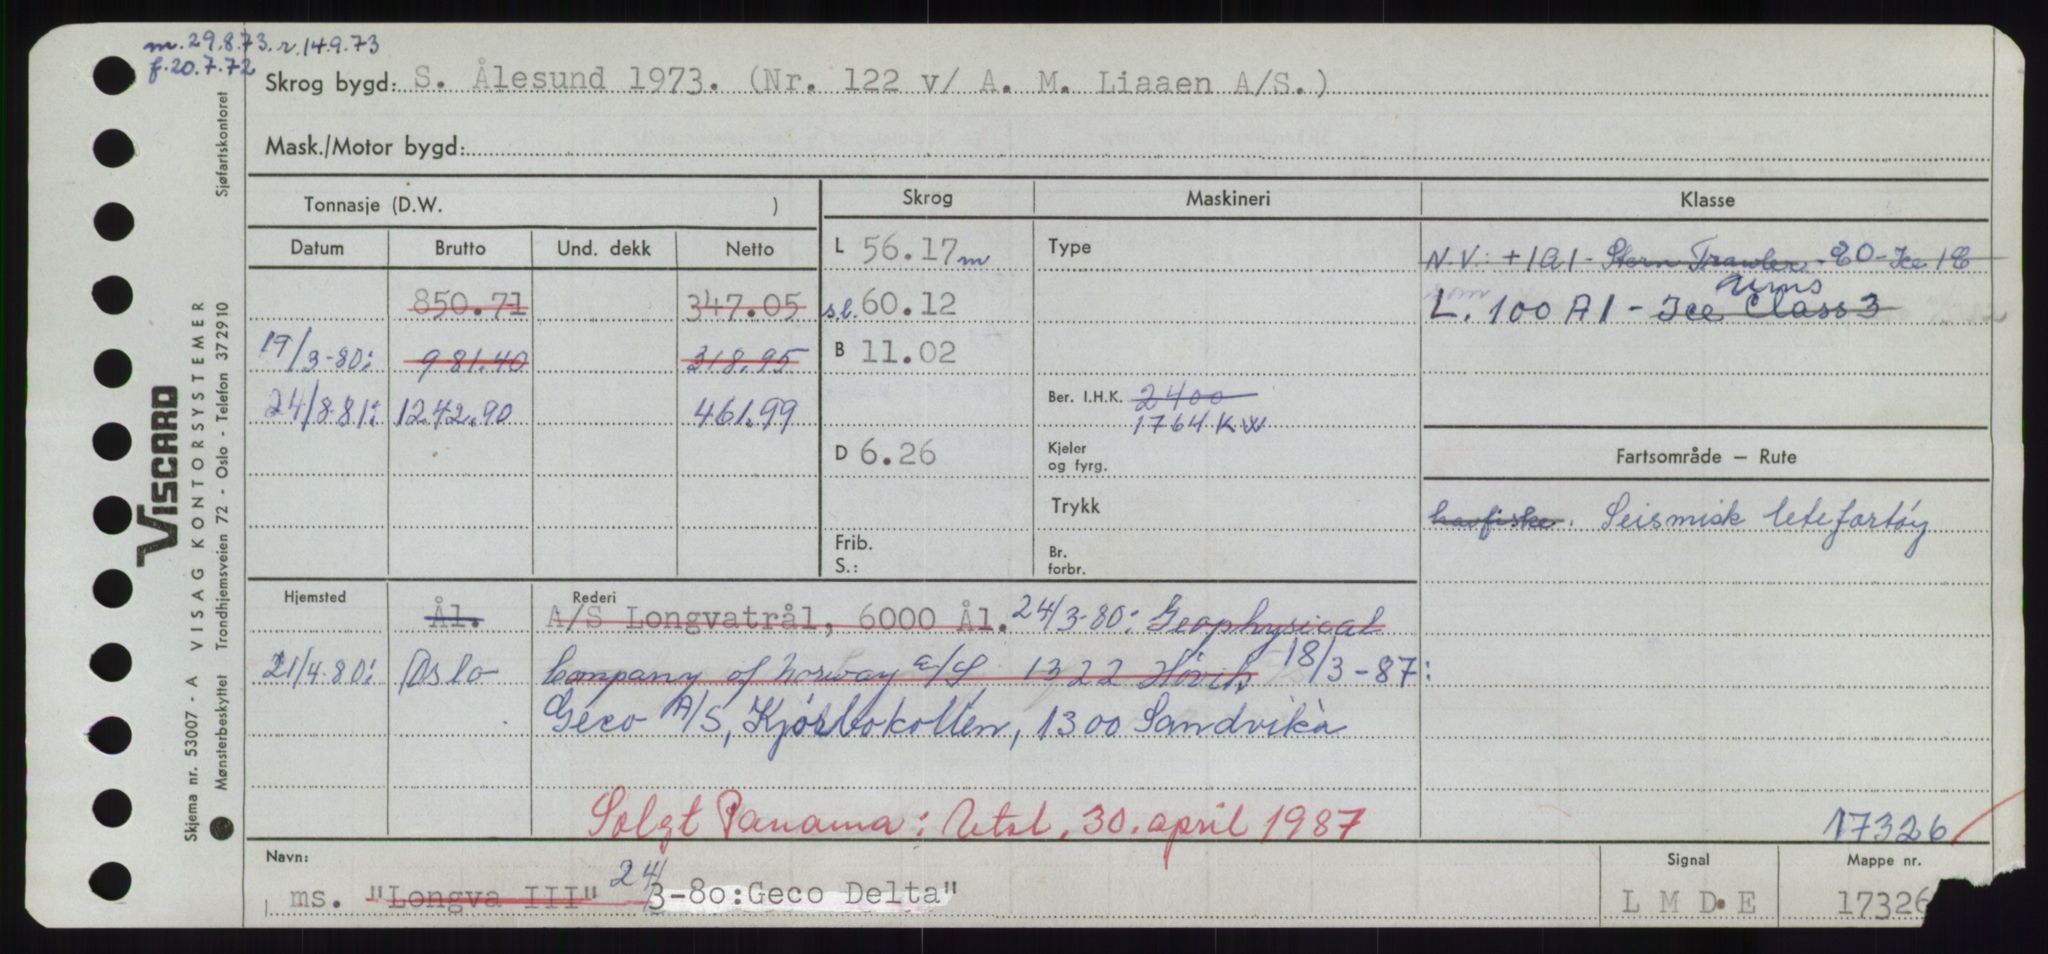 m. 29.8.73. r. 14.9.73
f. 20.7.72
Skrog bygd: S. Ålesund 1973. (Nr. 122 v/ A. M. Liaaen A/S.)
Mask./Motor bygd:
Tonnasje (D.W. )
Skrog
Maskineri
Klasse
Datum Brutto Und. dekk Netto
L 56.17 m
Type
N.V. +1A1 - Stern Trawler - EO - Ice 1C
850.71 347.05
s.l. 60.12
L. 100 A1 - Ice Class 3
ums
19/3-80: 981.40 318.95
B 11.02
24/8-81: 1242.90 461.99
Ber. I.H.K. 2400
1764 KW
D 6.26
Kjeler
og fyrg.
Fartsområde – Rute
Trykk
havfiske. Seismisk letefartøy
Frib.
S.:
Br.
forbr.
Hjemsted
Rederi
Ål. A/S Longvatrål, 6000 Ål. 24/3-80: Geophysical
21/4-80: Oslo Company of Norway A/S 1322 Høvik 18/3-87:
Geco A/S, Kjørbokollen, 1300 Sandvika
Solgt Panama: Utsl. 30. april 1987
17326
Navn:
Signal
Mappe nr.
ms. "Longva III" 24/3-80: Geco Delta"
L M D E
17326
Skjema nr. 53007 - A VISAG KONTORSYSTEMER
Mønsterbeskyttet Trondhjemsveien 72 - Oslo - Telefon 372910 Sjøfartskontoret
VISCARD